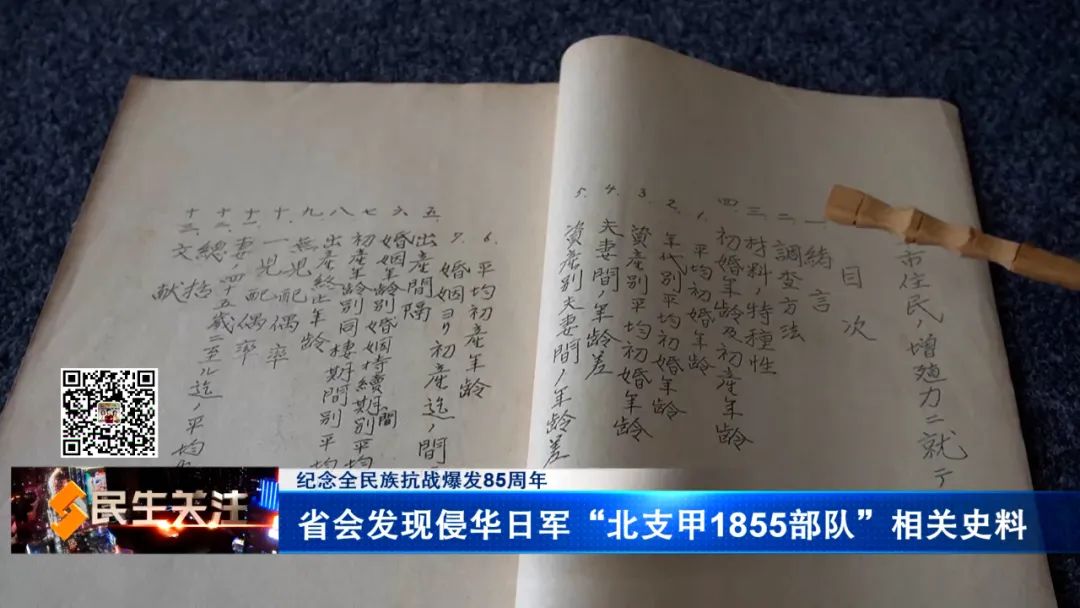 市住民ノ增殖力ニ就テ
目次
一、緒言
二、調查方法
三、材料ノ特種性
四、初婚年齡及初產年齡
1. 平均初婚年齡
2. 年代別平均初婚年齡
3. 資產別平均初婚年齡
4. 夫妻間ノ年齡差
5. 資產別夫妻間ノ年齡差
6. 平均初產年齡
7. 婚姻ヨリ初產迄ノ間
五、出產間隔
六、婚姻年齡別婚姻持續期間別平均
七、初產年齡別同棲期間別平均
八、出產終止年齡
九、無児配偶率
十、一児配偶率
十一、妻ノ四十五歲ニ至ル迄ノ平均
十二、總括
十三、文献
民生关注
纪念全民族抗战爆发85周年
省会发现侵华日军“北支甲1855部队”相关史料